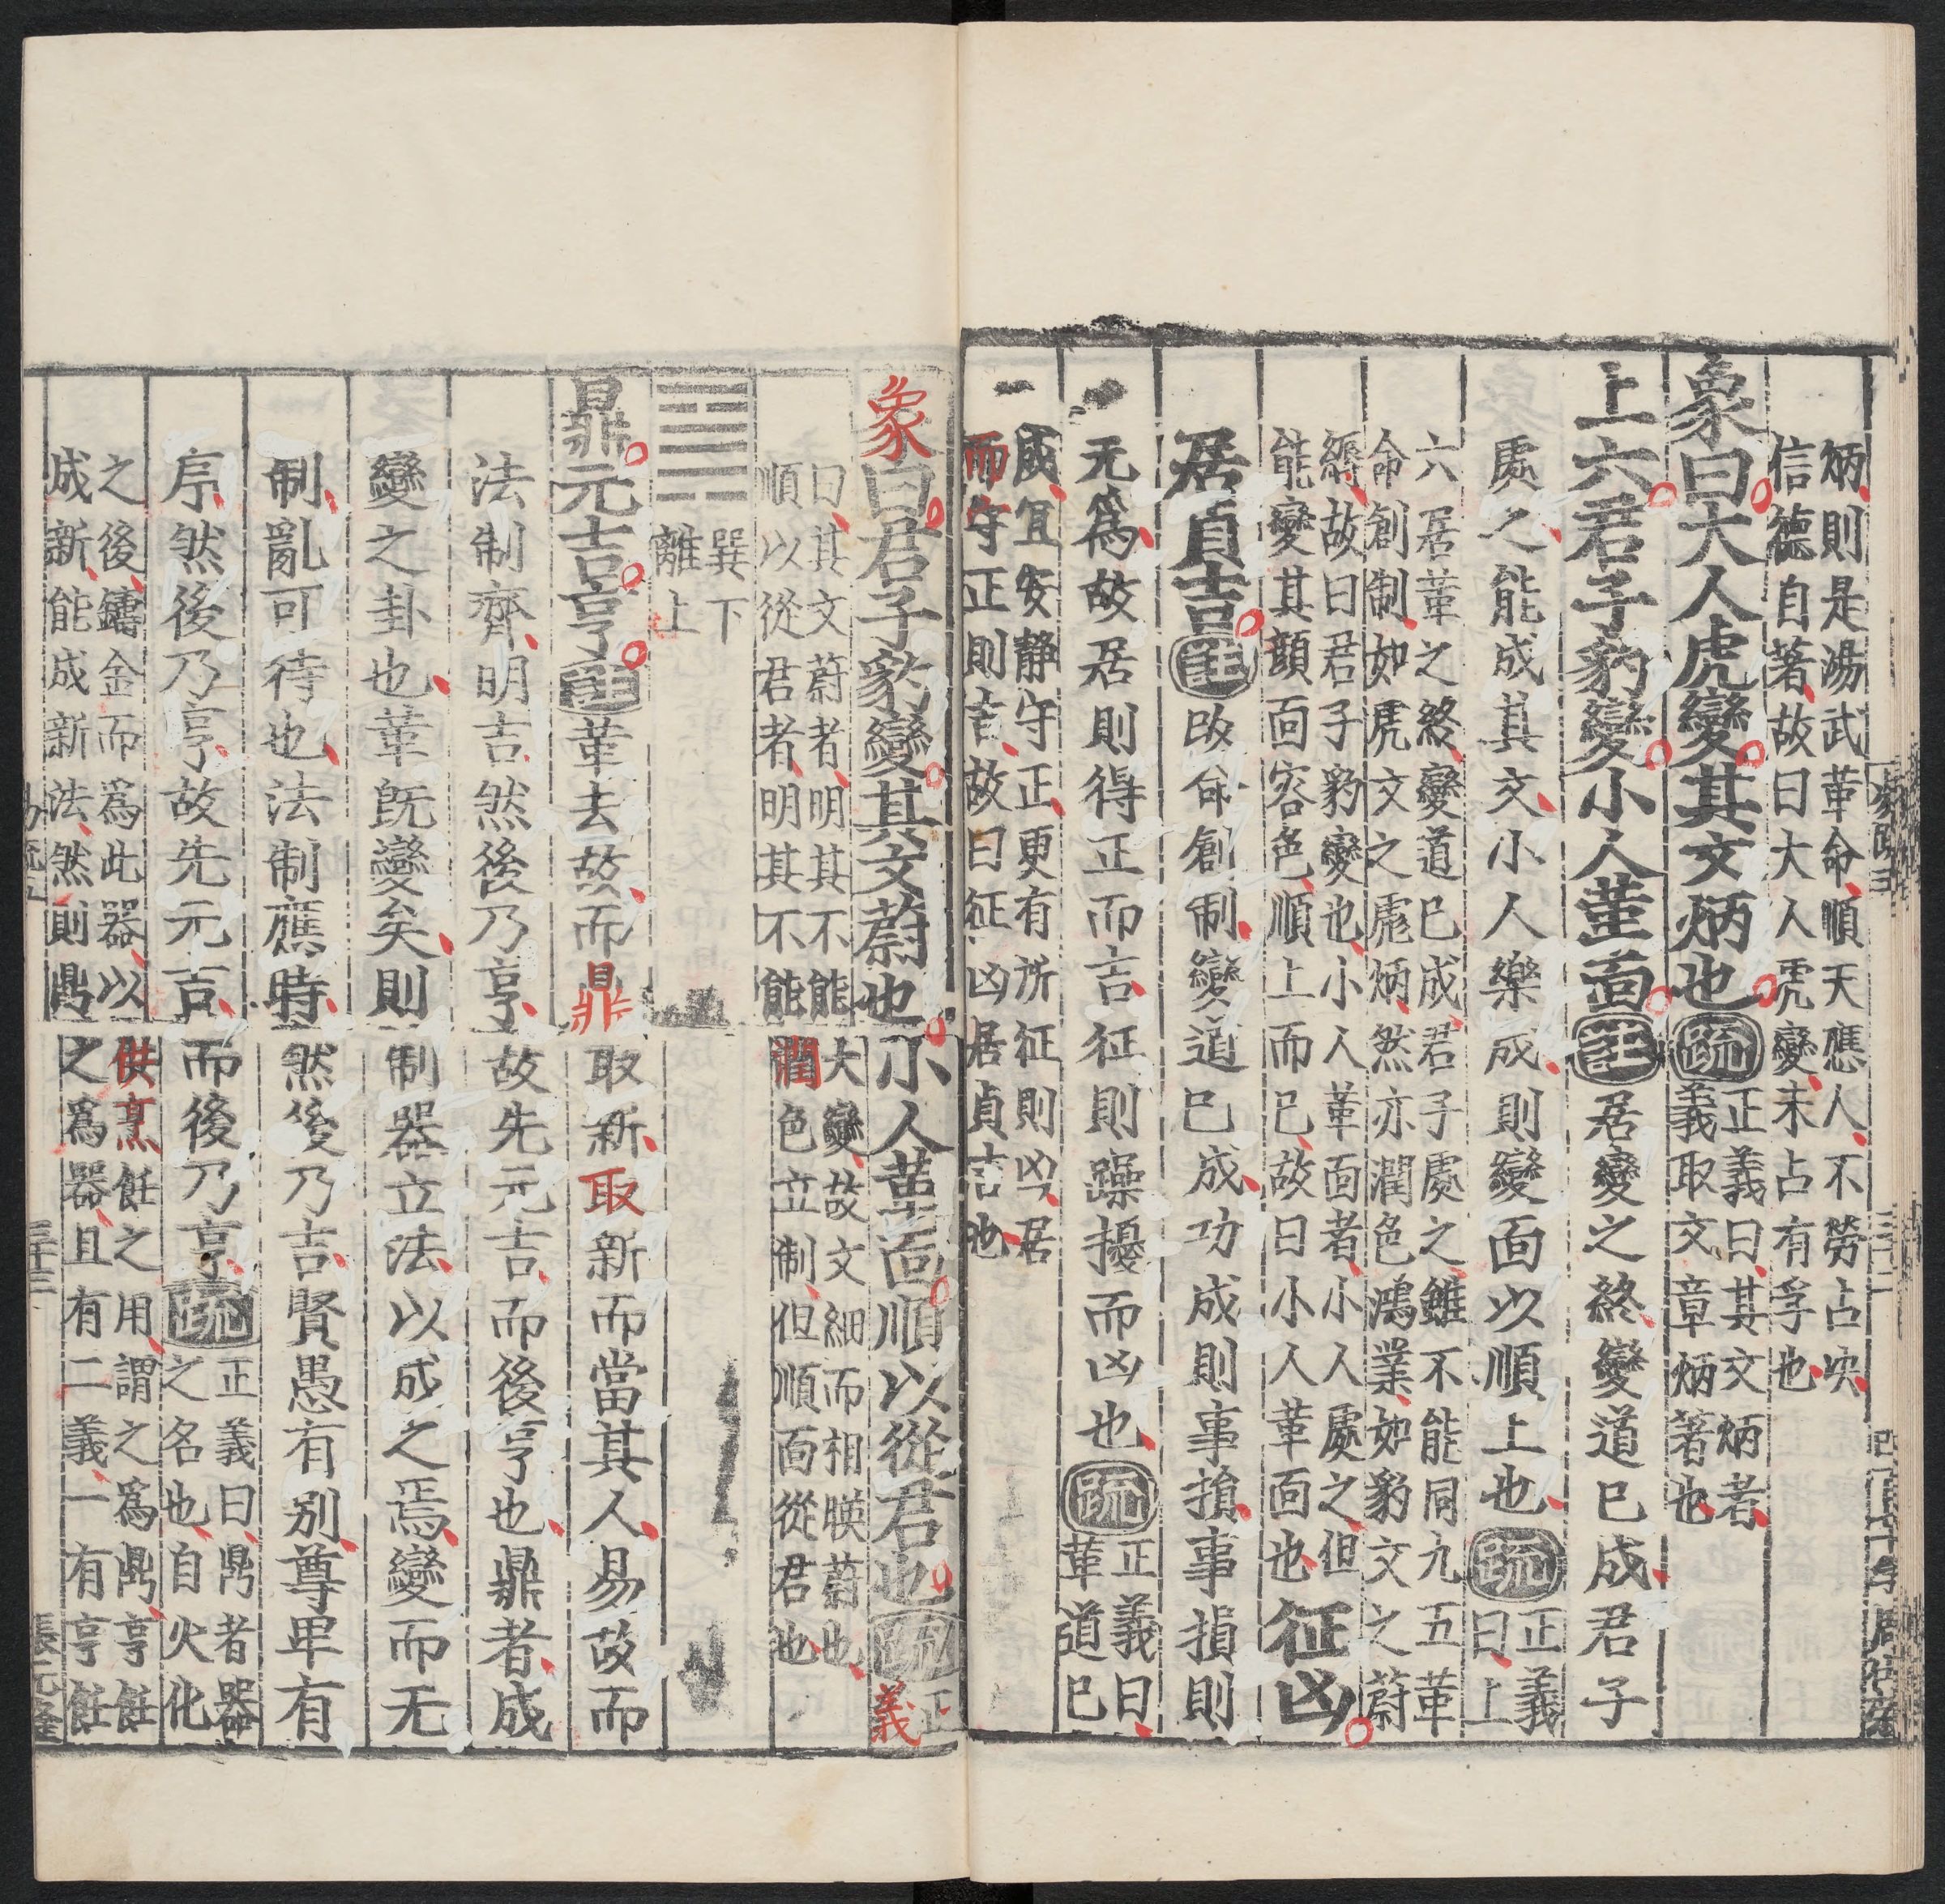 炳則是湯武革命順天應人不勞占決
信德自著故曰大人虎變未占有孚也
象曰大人虎變其文炳也疏正義曰其文炳者
義取文章炳著也
上六君子豹變小人革面註居變之終變道已成君子
處之能成其文小人樂成則變面以順上也疏正義
曰上
六居革之終變道已成君子處之雖不能同九五革
命創制如虎文之彪炳然亦潤色鴻業如豹文之蔚
縟故曰君子豹變也小人革面者小人處之但
能變其顏面容色順上而已故曰小人革面也征凶
居貞吉註改命創制變道已成功成則事損事損則
无爲故居則得正而吉征則躁擾而凶也疏正義曰
革道已
成宜安靜守正更有所征則凶居
而守正則吉故曰征凶居貞吉也
象曰君子豹變其文蔚也小人革面順以從君也疏正
義
曰其文蔚者明其不能大變故文細而相暎蔚也
順以從君者明其不能潤色立制但順面從君也
巽下
離上
鼎元吉亨註革去故而鼎取新取新而當其人易故而
法制齊明吉然後乃亨故先元吉而後亨也鼎者成
變之卦也革旣變矣則制器立法以成之焉變而无
制亂可待也法制應時然後乃吉賢愚有别尊卑有
序然後乃亨故先元吉而後乃亨疏正義曰鼎者器
之名也自火化
之後鑄金而爲此器以供烹飪之用謂之爲鼎亨飪
成新能成新法然則鼎之爲器且有二義一有亨飪
易疏五
三十三
張元隆